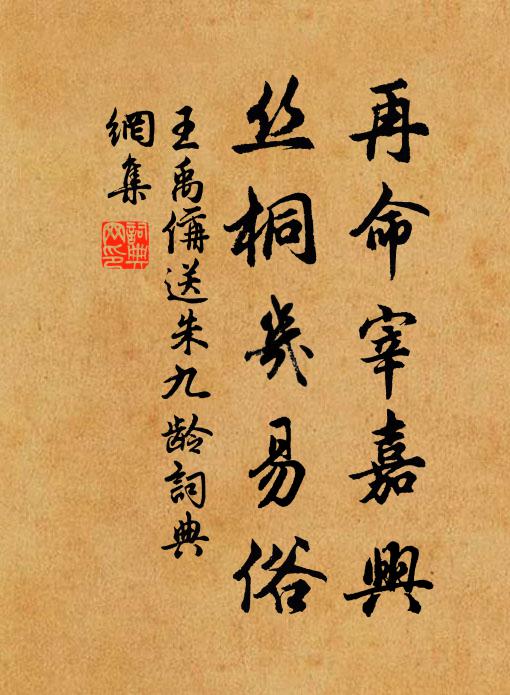 再命宰嘉興
丝桐幾易俗
王禹偁送朱九龄詞典
網集
詞典
网印